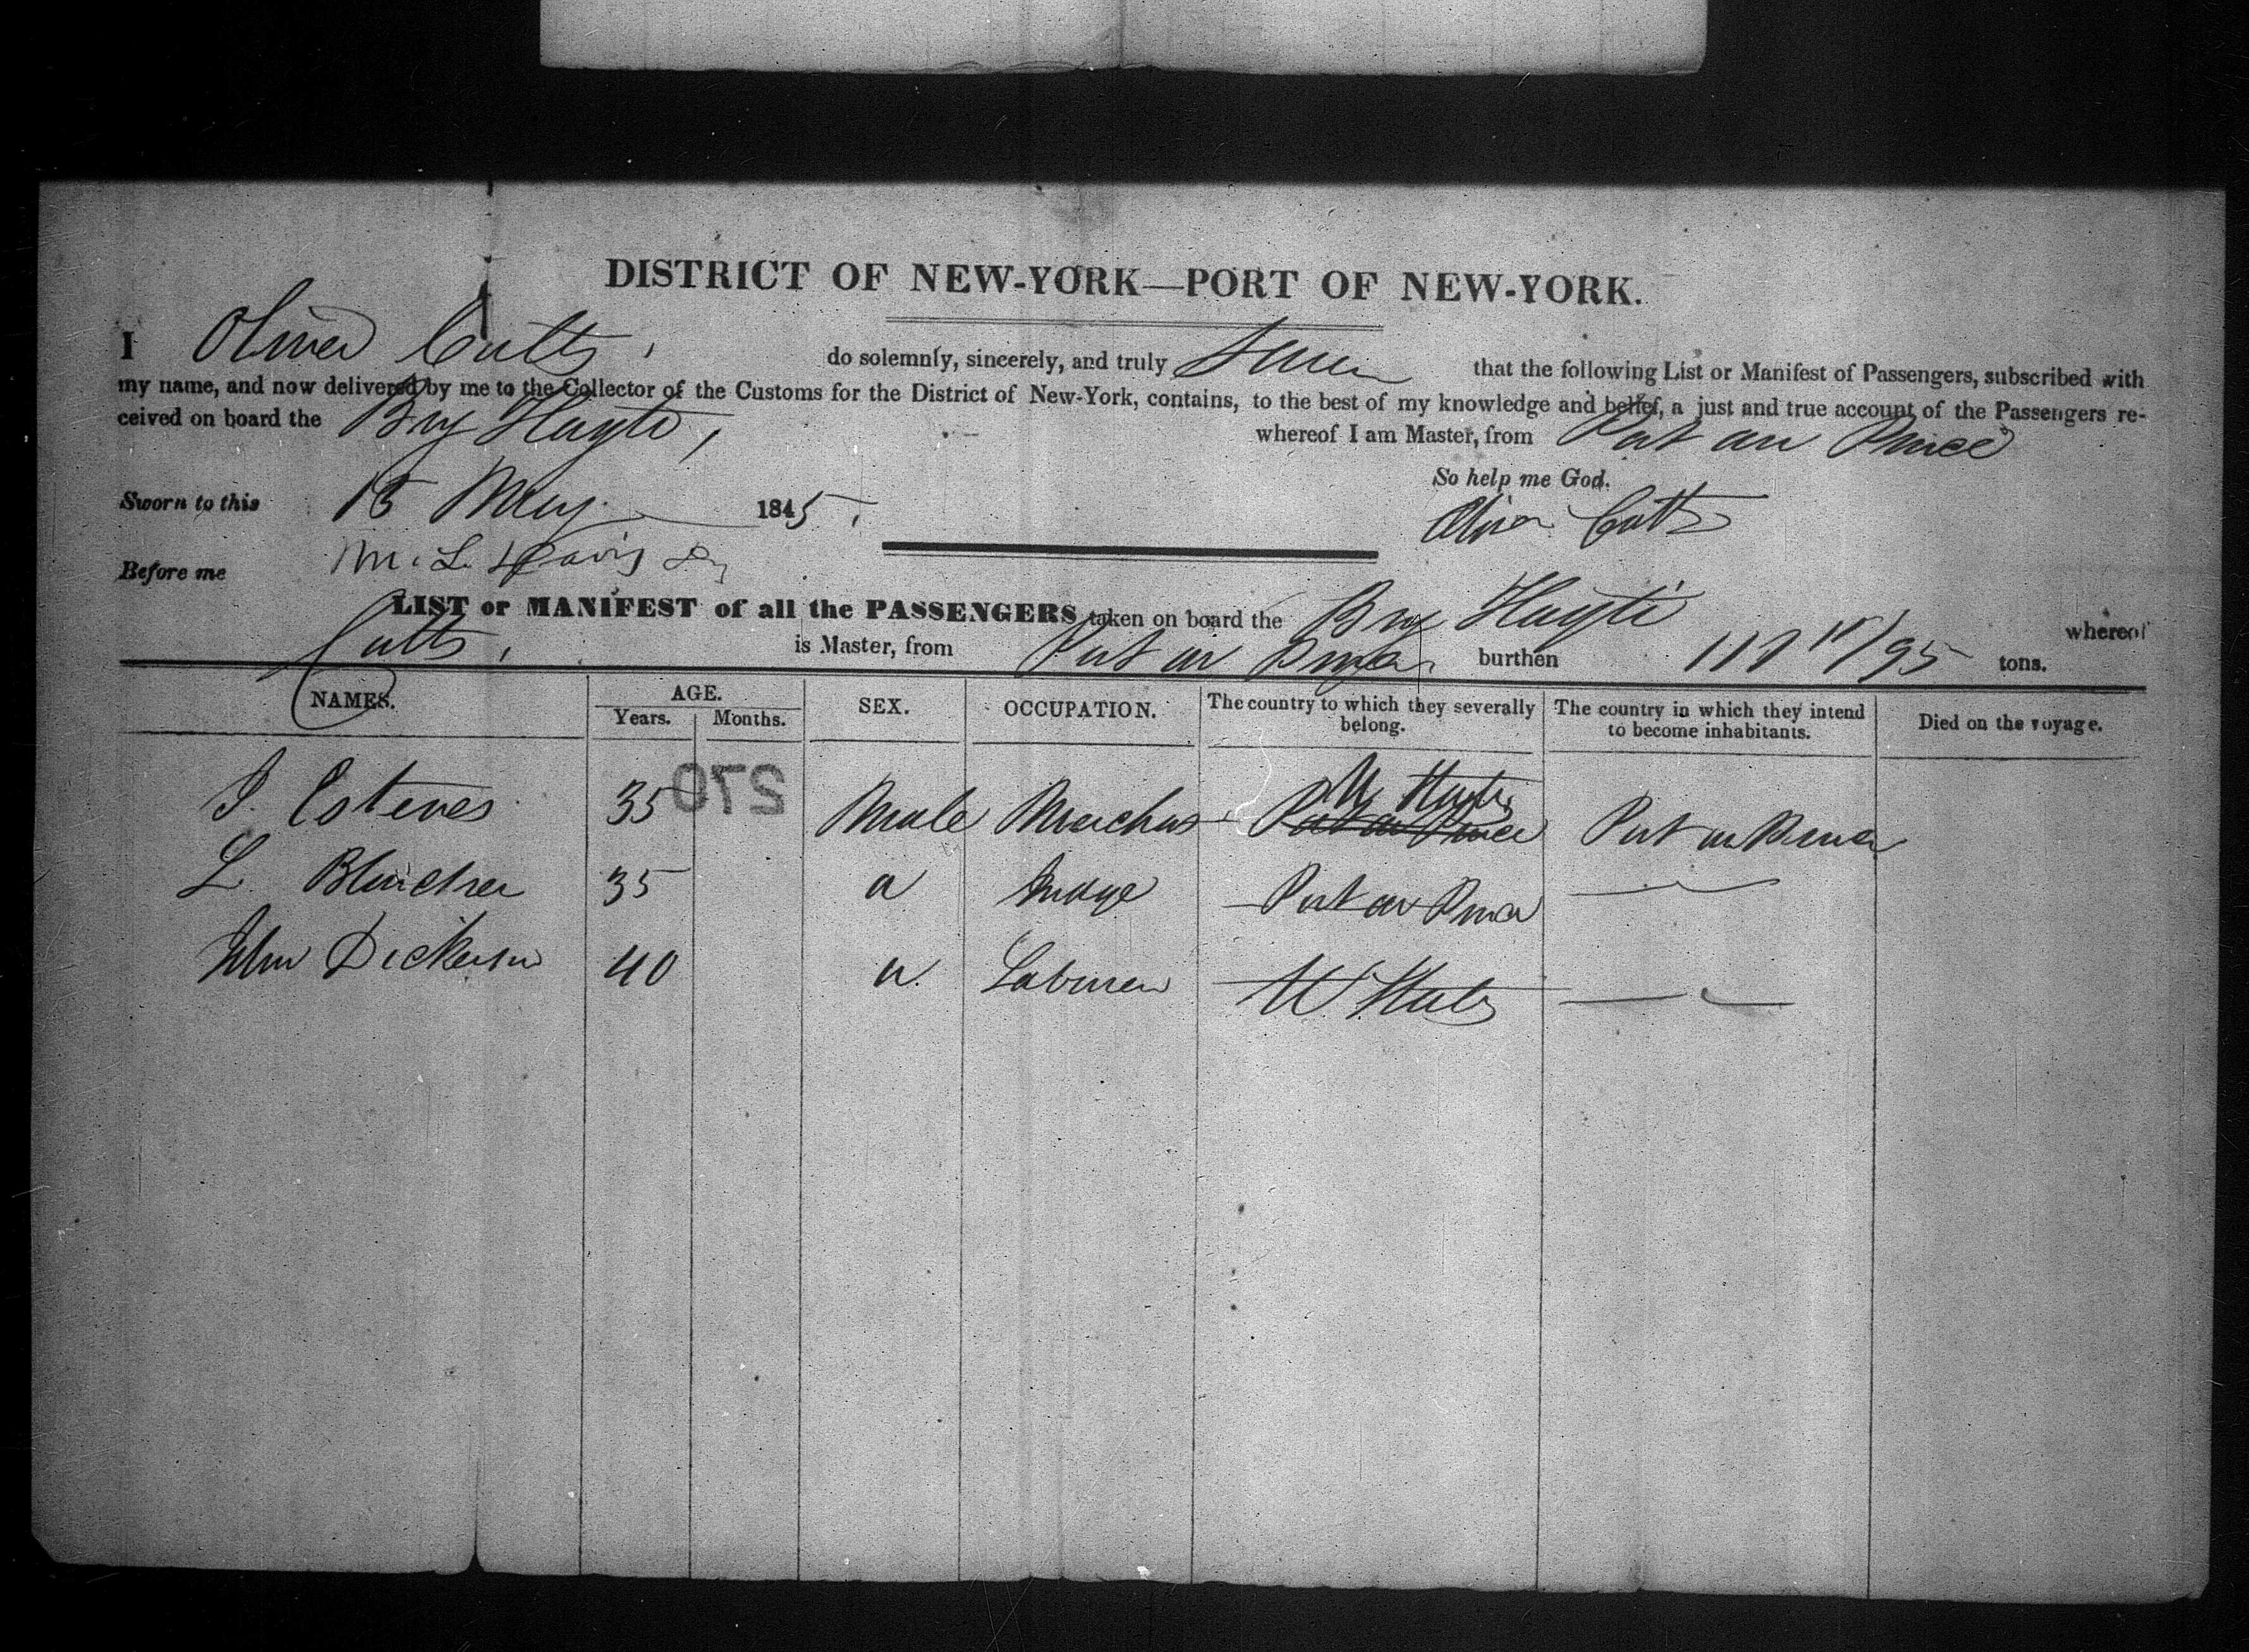 DISTRICT OF NEW-YORK—PORT OF NEW-YORK.
I Oliver Cutts, do solemnly, sincerely, and truly Swear that the following List or Manifest of Passengers, subscribed with
my name, and now delivered by me to the Collector of the Customs for the District of New-York, contains, to the best of my knowledge and belief, a just and true account of the Passengers re-
ceived on board the Brig Hayti, whereof I am Master, from Port au Prince
So help me God.
Sworn to this 15 May 1845, Oliver Cutts
Before me M. L. Davis
LIST or MANIFEST of all the PASSENGERS taken on board the Brig Hayti whereof
Cutts, is Master, from Port au Prince burthen /95 tons.
NAMES. AGE. SEX. OCCUPATION. The country to which they severally belong. The country in which they intend to become inhabitants. Died on the voyage.
Years. Months.
270
U States
J. Esteves 35 Male Merchant Port au Prince Port au Prince
L. 35 Judge Port au Prince
John Dickerson 40 Labourer U States